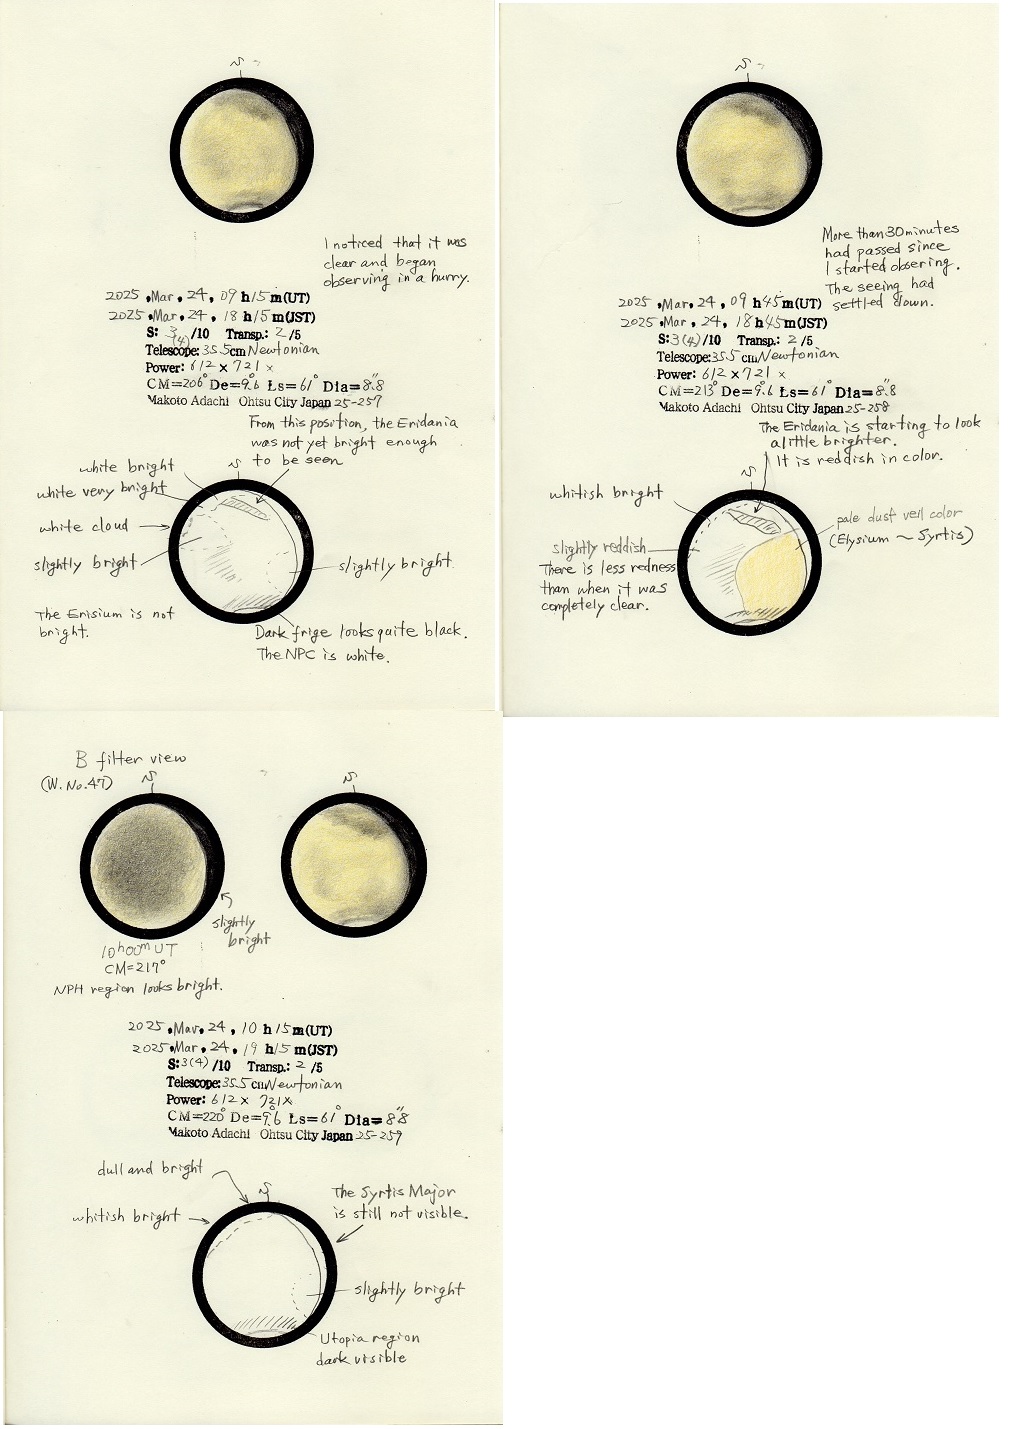 S
I noticed that it was
clear and began
observing in a hurry.
2025 .Mar. 24, 09 h 15 m(UT)
2025 .Mar. 24, 18 h 15 m(JST)
S: 3(4) /10 Transp.: 2 /5
Telescope: 35.5cm Newtonian
Power: 612 × 721 ×
CM=206° De=9.6° Ls=61° Dia=8.8"
Makoto Adachi Ohtsu City Japan 25-257
From this position, the Eridania
was not yet bright enough
to be seen
white bright
S
white very bright
white cloud
slightly bright
slightly bright.
The Erisium is not
bright.
Dark frige looks quite black.
The NPC is white.
S
More than 30 minutes
had passed since
I started obsering.
The seeing had
settled down.
2025 .Mar. 24, 09 h 45 m(UT)
2025 .Mar. 24, 18 h 45 m(JST)
S: 3(4) /10 Transp.: 2 /5
Telescope: 35.5 cm Newtonian
Power: 612 × 721 ×
CM=213° De=9.6° Ls=61° Dia=8.8"
Makoto Adachi Ohtsu City Japan 25-258
The Eridania is starting to look
a little brighter.
It is reddish in color.
S
whitish bright
pale dust veil color
(Elysium ~ Syrtis)
slightly reddish
There is less redness
than when it was
completely clear.
B filter view
(W. No.47)
S
S
slightly
bright
10h00m UT
CM=217°
NPH region looks bright.
2025 .Mar. 24, 10 h 15 m(UT)
2025 .Mar. 24, 19 h 15 m(JST)
S: 3(4) /10 Transp.: 2 /5
Telescope: 35.5 cm Newtonian
Power: 612 × 721×
CM=220° De=9.6° Ls=61° Dia=8.8"
Makoto Adachi Ohtsu City Japan 25-259
dull and bright
S
The Syrtis Major
is still not visible.
whitish bright
slightly bright
Utopia region
dark visible